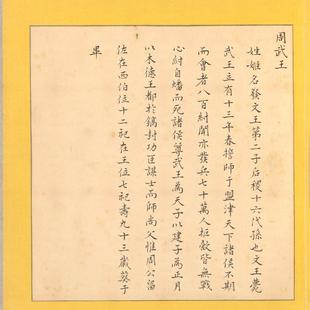 周武王
姓姬名發文王第二子后稷十六代孫也文王薨
武王立有十三年春誓師于盟津天下諸侯不期
而會者八百紂聞亦發兵七十萬人拒敵皆無戰
心紂自燔而死諸侯尊武王為天子以建子為正月
以木德王都於鎬封功臣謀士而師尚父惟周公留
佐在西伯位十二祀在王位七祀壽九十三歲葬于
畢